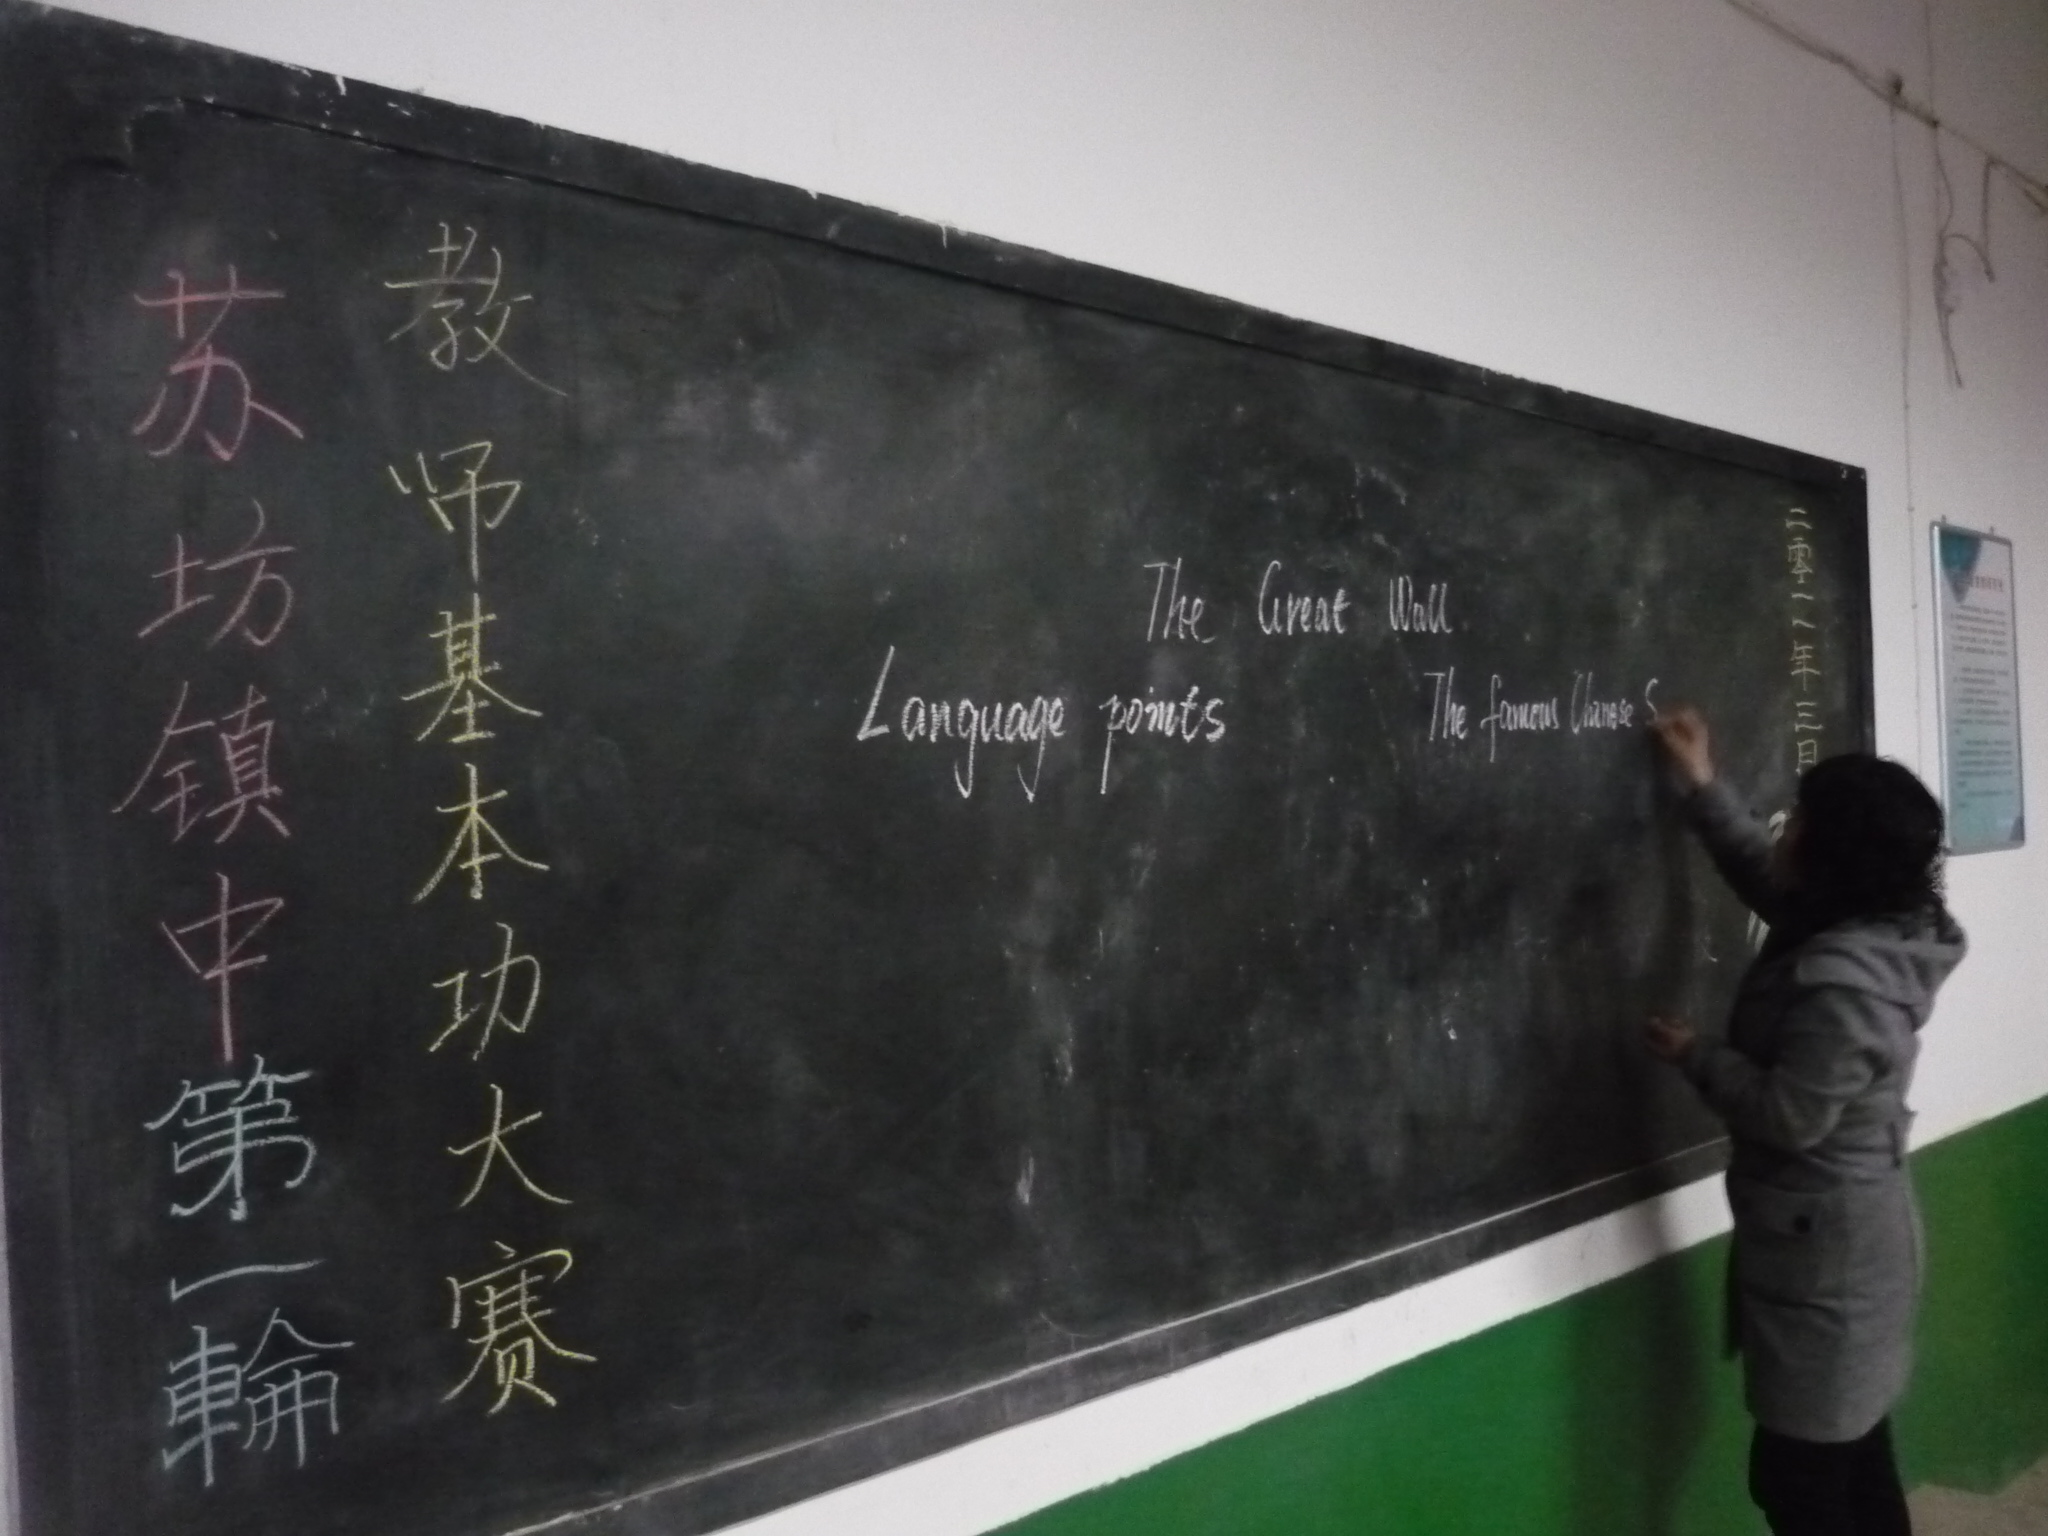 苏坊镇中第一輪
教师基本功大赛
The Great Wall
Language points
The famous Chinese S
二零一八年三月